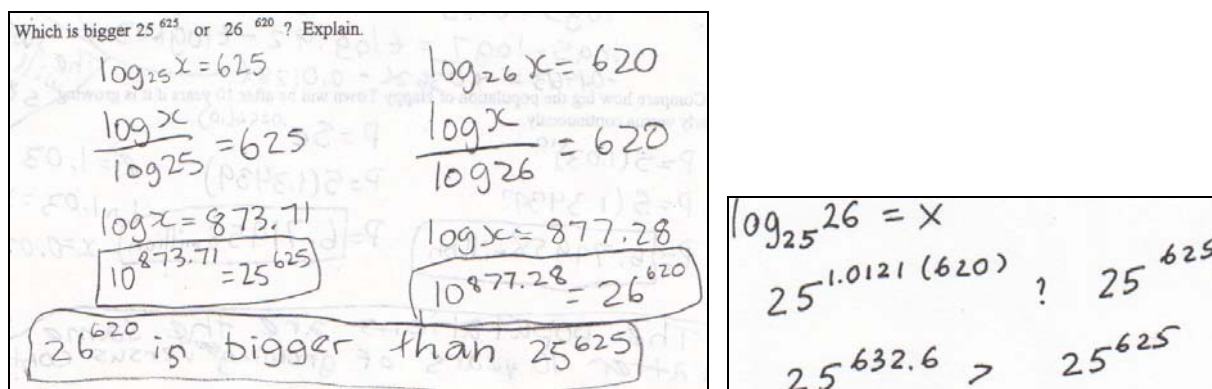 Which is bigger 25^625 or 26^620 ? Explain.
log₂₅ x = 625
log x / log 25 = 625
log x = 873.71
10^873.71 = 25^625
log₂₆ x = 620
log x / log 26 = 620
log x = 877.28
10^877.28 = 26^620
26^620 is bigger than 25^625
log₂₅ 26 = x
25^1.0121 (620) ? 25^625
25^632.6 > 25^625